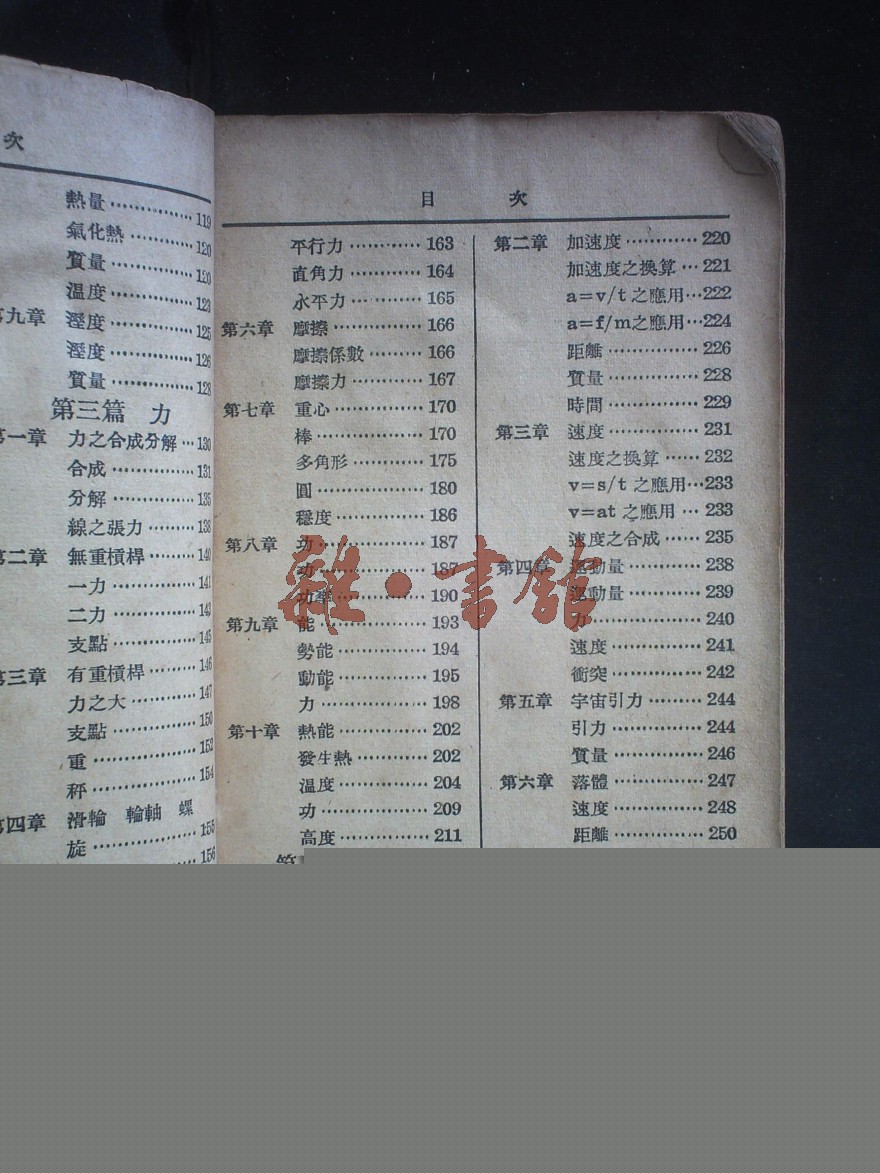 次
熱量……………119
氣化熱…………120
質量……………120
溫度……………123
第九章 溼度……………125
溼度……………126
質量……………128
第三篇 力
第一章 力之合成分解…130
合成……………131
分解……………135
線之張力………138
第二章 無重槓桿………140
一力……………141
二力……………143
支點……………145
第三章 有重槓桿………146
力之大…………147
支點……………150
重………………152
秤………………154
第四章 滑輪 輪軸 螺
旋………………155
156
目 次
平行力…………163
直角力…………164
水平力…………165
第六章 摩擦……………166
摩擦係數………166
摩擦力…………167
第七章 重心……………170
棒………………170
多角形…………175
圓………………180
穩度……………186
第八章 功………………187
功………………187
功率……………190
第九章 能………………193
勢能……………194
動能……………195
力………………198
第十章 熱能……………202
發生熱…………202
溫度……………204
功………………209
高度……………211
第二章 加速度…………220
加速度之換算…221
a=v/t之應用…222
a=f/m之應用…224
距離……………226
質量……………228
時間……………229
第三章 速度……………231
速度之換算……232
v=s/t之應用…233
v=at之應用…233
速度之合成……235
第四章 運動量…………238
運動量…………239
力………………240
速度……………241
衝突……………242
第五章 宇宙引力………244
引力……………244
質量……………246
第六章 落體……………247
速度……………248
距離……………250
雜·書館